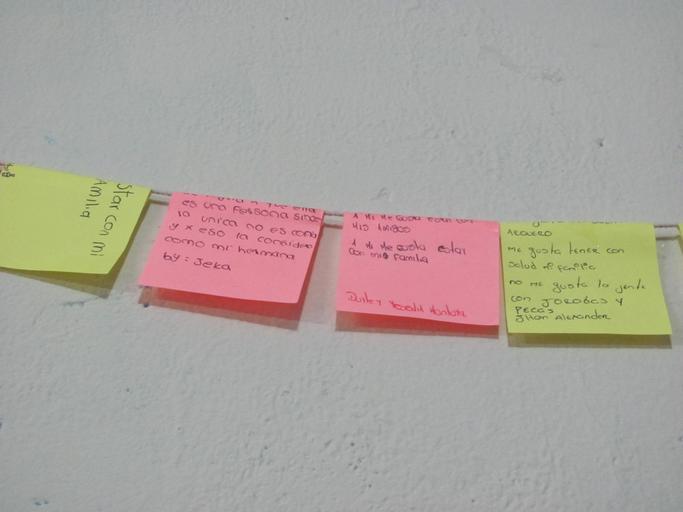 star con mi
amilia
es una persona since
la unica no es como
y x eso la considero
como mi hermana
by: Jeka
A mi me gusta estar con
mis amigos
A mi me gusta estar
con mis familia
ARQUERO
me gusta tener con
salud mi familia
no me gusta la jente
con JOROBAS Y
PECAS
Jhon Alexander